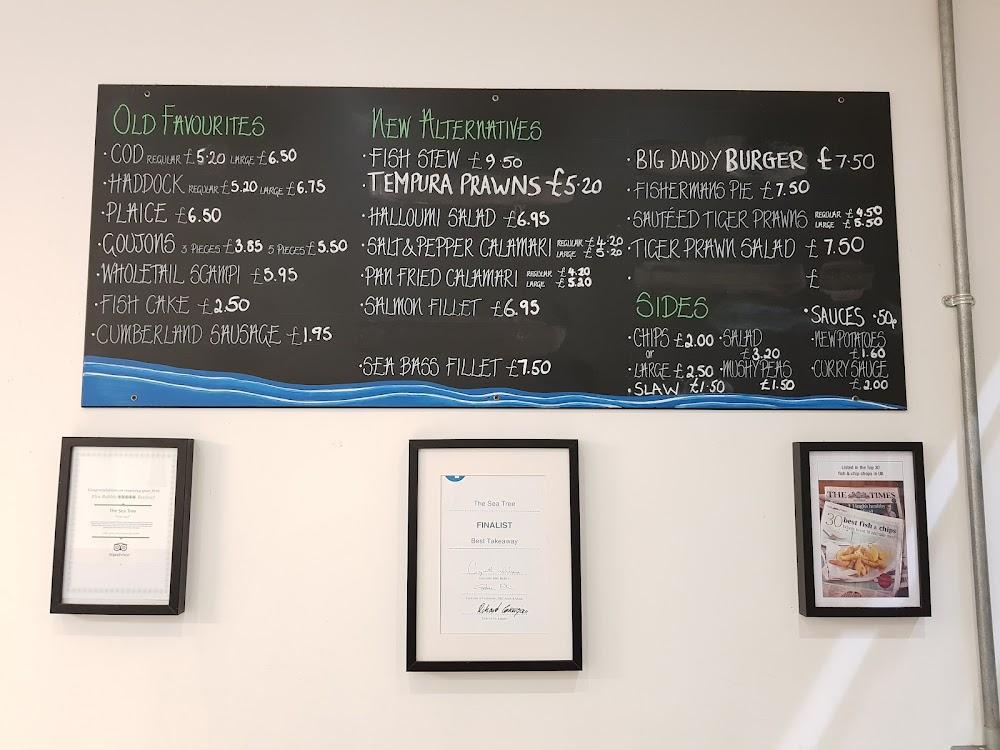 OLD FAVOURITES
·COD REGULAR £5·20 LARGE £6.50
·HADDOCK REGULAR £5.20 LARGE £6.75
·PLAICE £6.50
·GOUJONS 3 PIECES £3.85 5 PIECES £5.50
·WHOLETAIL SCAMPI £5.95
·FISH CAKE £2.50
·CUMBERLAND SAUSAGE £1.95
NEW ALTERNATIVES
·FISH STEW £9.50
·TEMPURA PRAWNS £5·20
·HALLOUMI SALAD £6.95
·SALT & PEPPER CALAMARI REGULAR £4.20
LARGE £5.20
·PAN FRIED CALAMARI REGULAR £4.20
LARGE £5.20
·SALMON FILLET £6.95
·SEA BASS FILLET £7.50
·BIG DADDY BURGER £7.50
·FISHERMANS PIE £7.50
·SAUTÉED TIGER PRAWNS REGULAR £4.50
LARGE £5.50
·TIGER PRAWN SALAD £7.50
· £
SIDES
·CHIPS £2.00
or
·LARGE £2.50
·SLAW £1.50
·SALAD
£3.20
·MUSHY PEAS
£1.50
·SAUCES ·50p
·NEW POTATOES
£1.60
·CURRY SAUCE
£2.00
The Sea Tree
tripadvisor
The Sea Tree
FINALIST
Best Takeaway
Listed in the Top 30
fish & chip shops in UK
THE TIMES
30 best fish & chips